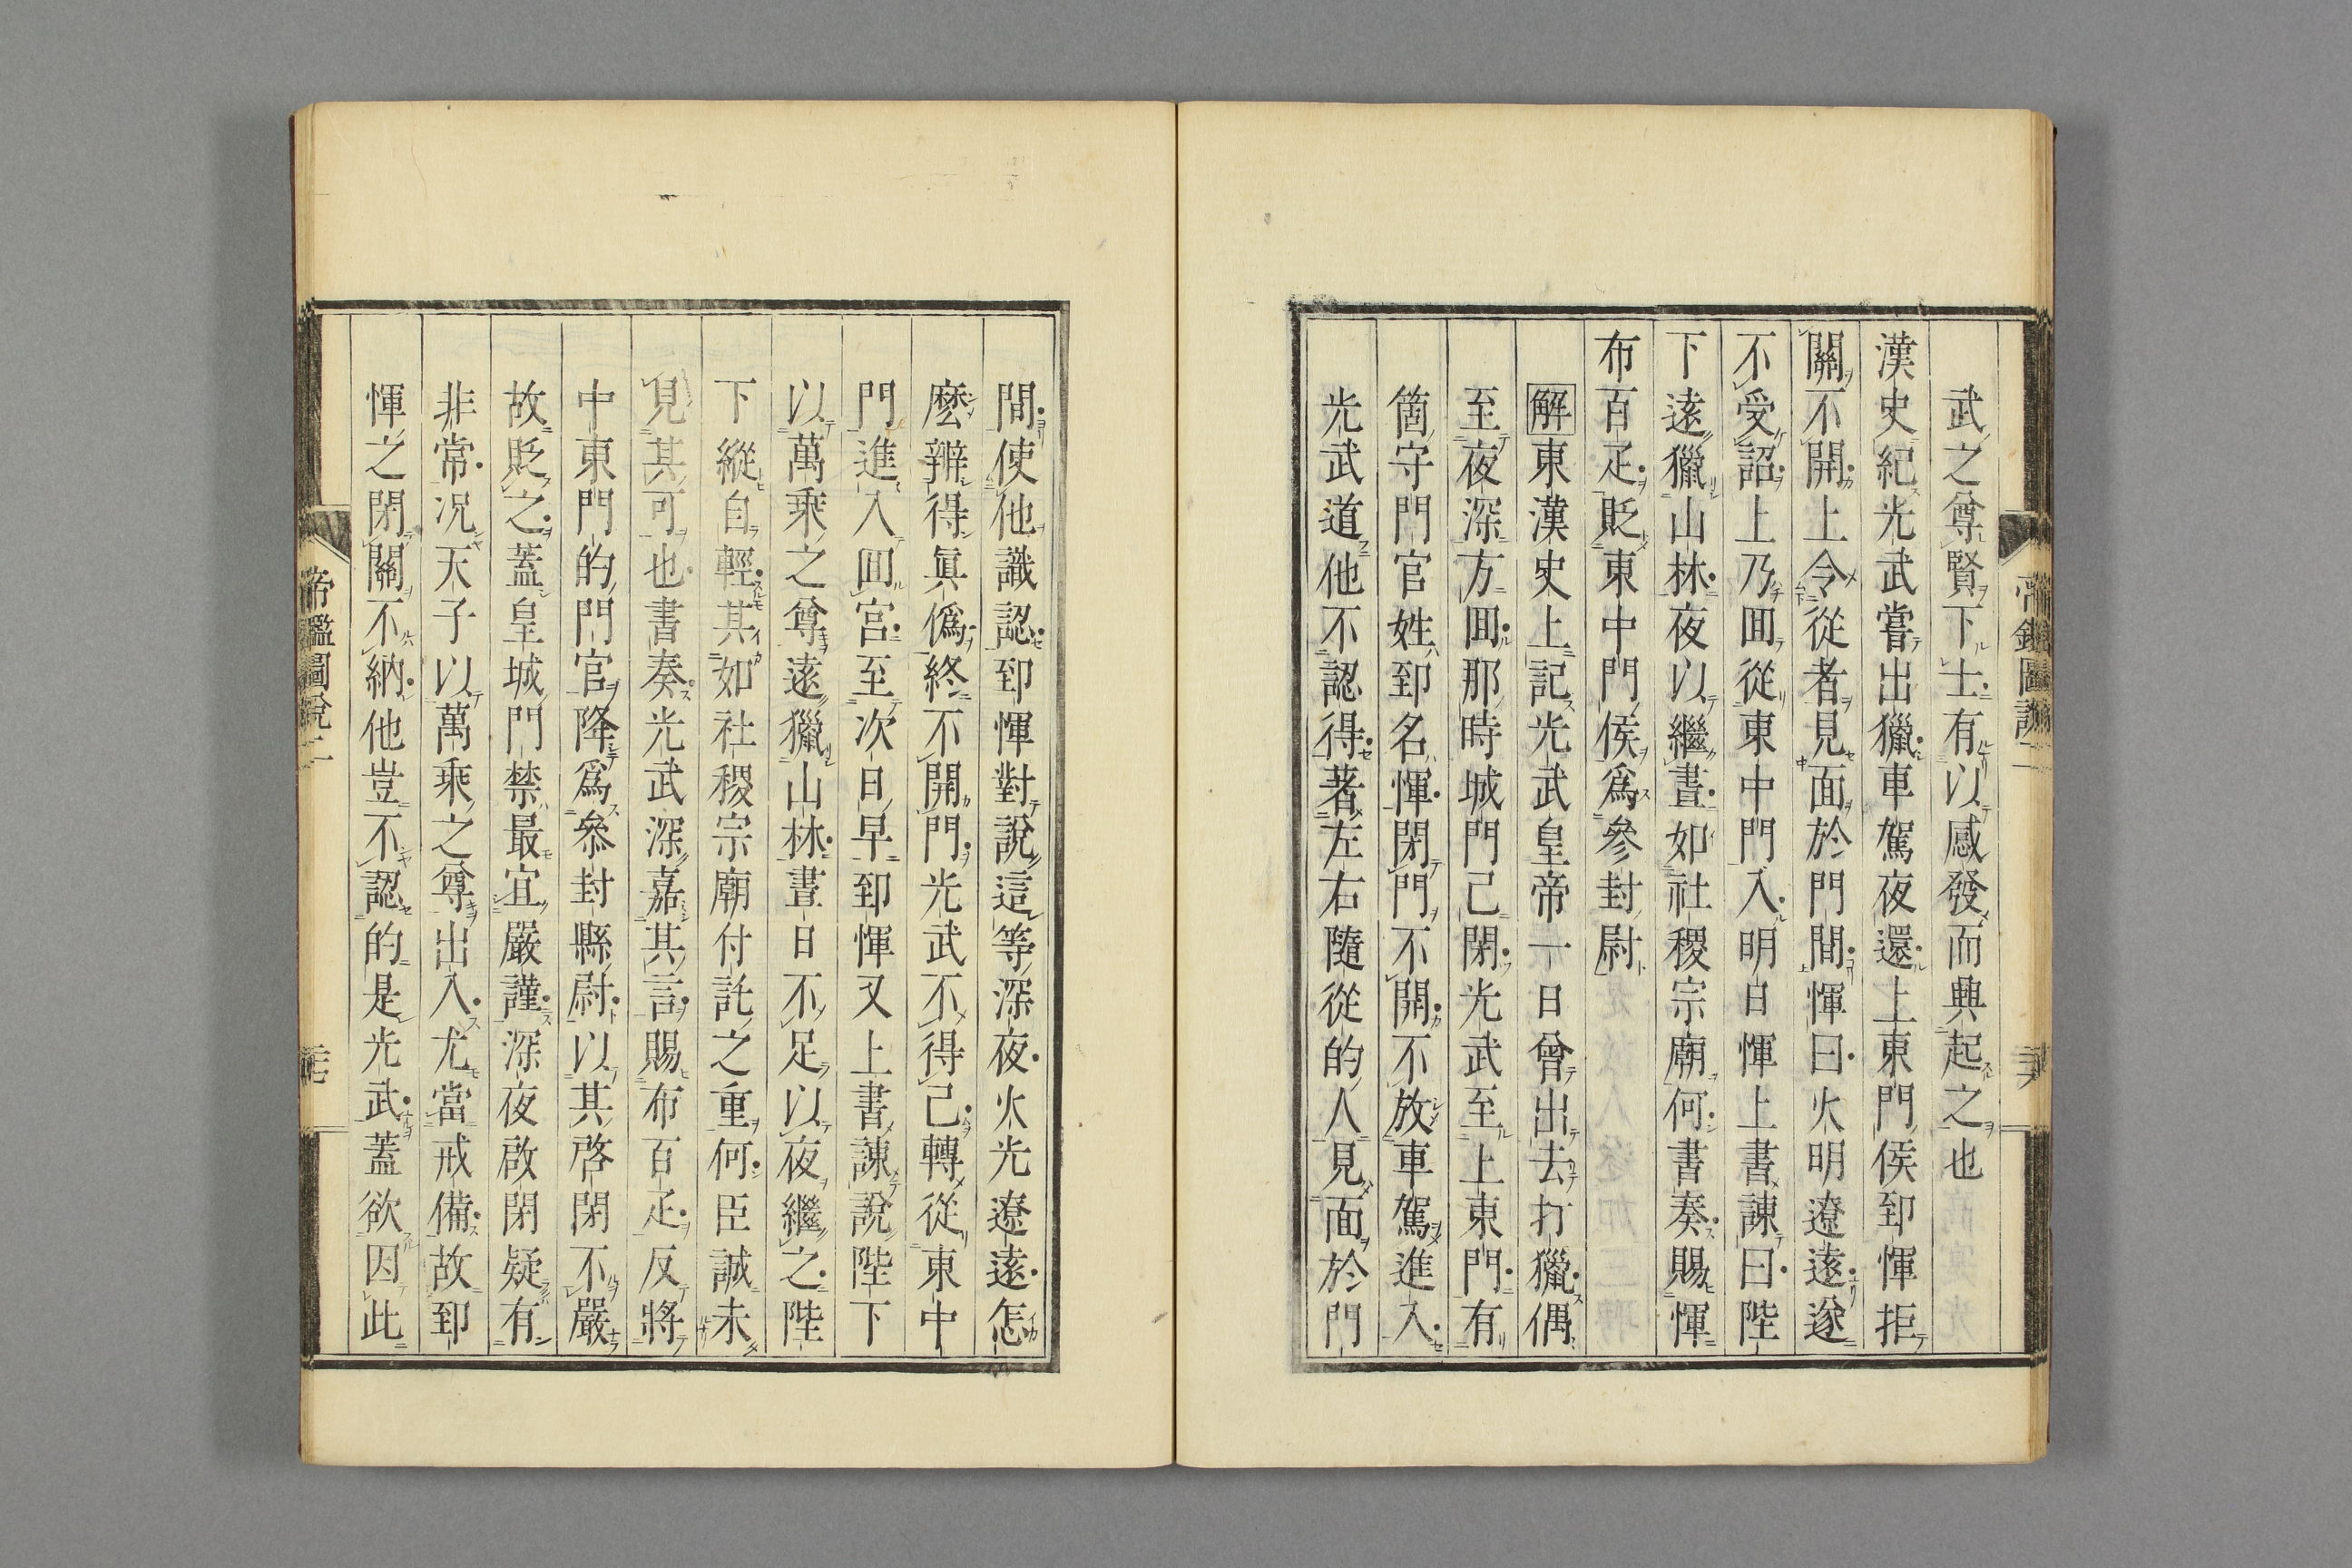 武之尊賢下士有以感發而興起之也
漢史紀光武嘗出獵車駕夜還上東門侯郅惲拒
關不開上令從者見面於門間惲曰火明遼遠遂
不受詔上乃回從東中門入明日惲上書諫曰陛
下遠獵山林夜以繼晝如社稷宗廟何書奏賜惲
布百疋貶東中門侯爲參封尉
解東漢史上記光武皇帝一日曾出去打獵偶
至夜深方回那時城門已閉光武至上東門有
箇守門官姓郅名惲閉門不開不放車駕進入
光武道他不認得著左右隨從的人見面於門
間使他識認郅惲對說這等深夜火光遼遠怎
麽辨得眞僞終不開門光武不得已轉從東中
門進入回宮至次日早郅惲又上書諫說陛下
以萬乘之尊遠獵山林晝日不足以夜繼之陛
下縱自輕其如社稷宗廟付託之重何臣誠未
見其可也書奏光武深嘉其言賜布百疋反將
中東門的門官降爲叅封縣尉以其啓閉不嚴
故貶之蓋皇城門禁最宜嚴謹深夜啟閉疑有
非常况天子以萬乘之尊出入尤當戒備故郅
惲之閉關不納他豈不認的是光武蓋欲因此
帝鑑圖說二